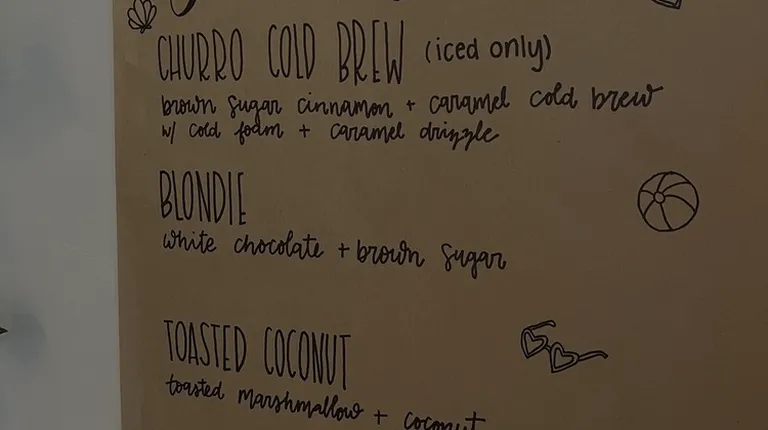 CHURRO COLD BREW (iced only)
brown sugar cinnamon + caramel cold brew
w/ cold foam + caramel drizzle
BLONDIE
white chocolate + brown sugar
TOASTED COCONUT
toasted marshmallow + coconut